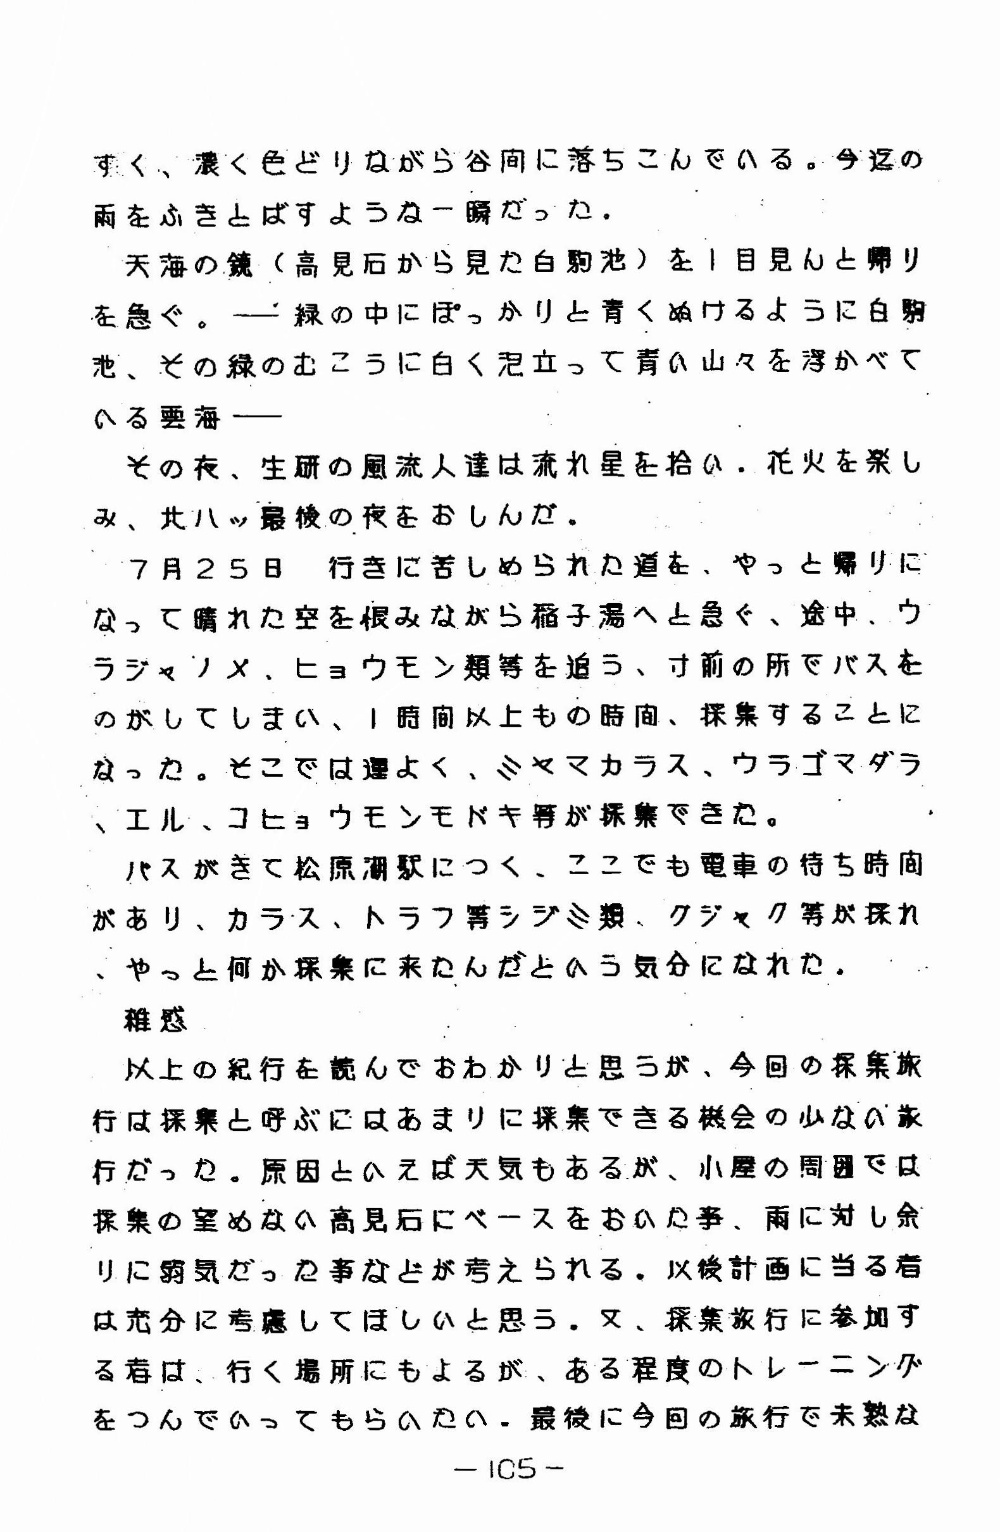 すく、濃く色どりながら谷間に落ちこんでいる。今迄の
雨をふきとばすような一瞬だった.
天海の鏡(高見石から見た白駒池)を1目見んと帰り
を急ぐ。——緑の中にぽっかりと青くぬけるように白駒
池、その緑のむこうに白く泡立って青い山々を浮かべて
いる雲海——
その夜、生研の風流人達は流れ星を拾い.花火を楽し
み、北八ッ最後の夜をおしんだ。
7月25日 行きに苦しめられた道を、やっと帰りに
なって晴れた空を恨みながら稲子湯へと急ぐ、途中、ウ
ラジャノメ、ヒョウモン類等を追う、寸前の所でバスを
のがしてしまい、1時間以上もの時間、採集することに
なった。そこでは運よく、ミヤマカラス、ウラゴマダラ
、エル、コヒョウモンモドキ等が採集できた。
バスがきて松原湖駅につく、ここでも電車の待ち時間
があり、カラス、トラフ等シジミ類、クジャク等が採れ
、やっと何か採集に来たんだという気分になれた.
雑感
以上の紀行を読んでおわかりと思うが、今回の採集旅
行は採集と呼ぶにはあまりに採集できる機会の少ない旅
行だった。原因といえば天気もあるが、小屋の周囲では
採集の望めない高見石にベースをおいた事、雨に対し余
りに弱気だった事などが考えられる.以後計画に当る者
は充分に考慮してほしいと思う.又、採集旅行に参加す
る者は、行く場所にもよるが、ある程度のトレーニング
をつんでいってもらいたい.最後に今回の旅行で未熟な
—105—